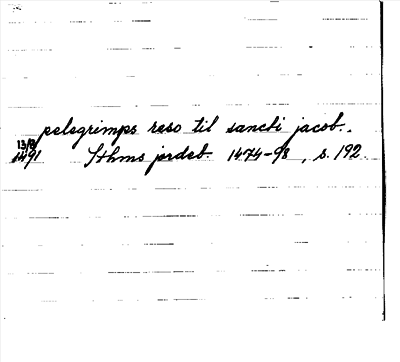 pelegrimps reso til sancti jacob.
13/8
1491 Sthms jordeb. 1474-98, s. 192.